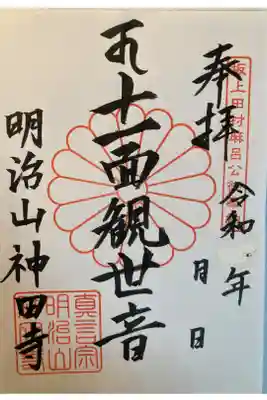 奉拝
令和 年
月 日
坂上田村麻呂公
十一面観世音
明治山神田寺
真言宗
明治山